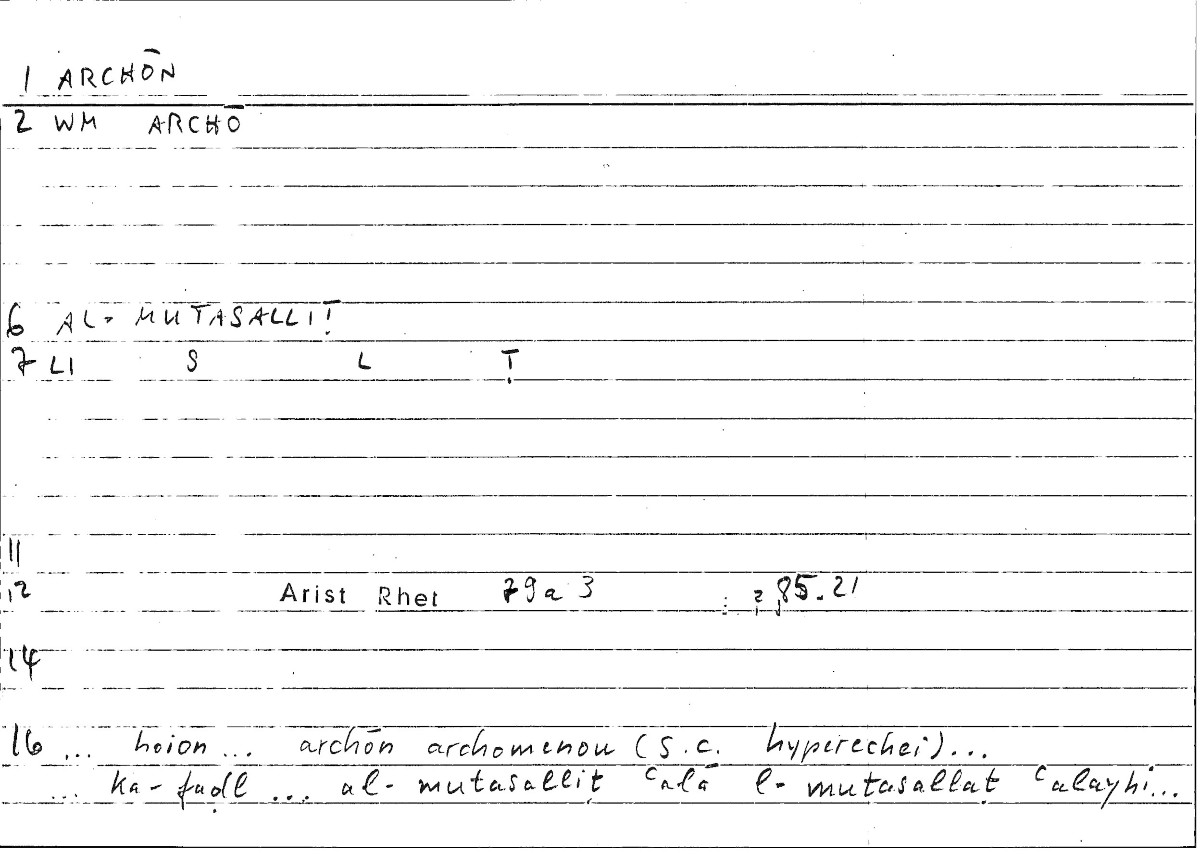 1 ARCHŌN
2 WM ARCHŌ
6 AL- MUTASALLIṬ
7 LI S L Ṭ
11
12 Arist Rhet 79a3 : 85.21
14
16 ... hoion ... archōn archomenou (s.c. hyperechei) ...
... ka-faḍl ... al-mutasalliṭ ʿalā l-mutasallaṭ ʿalayhi ...